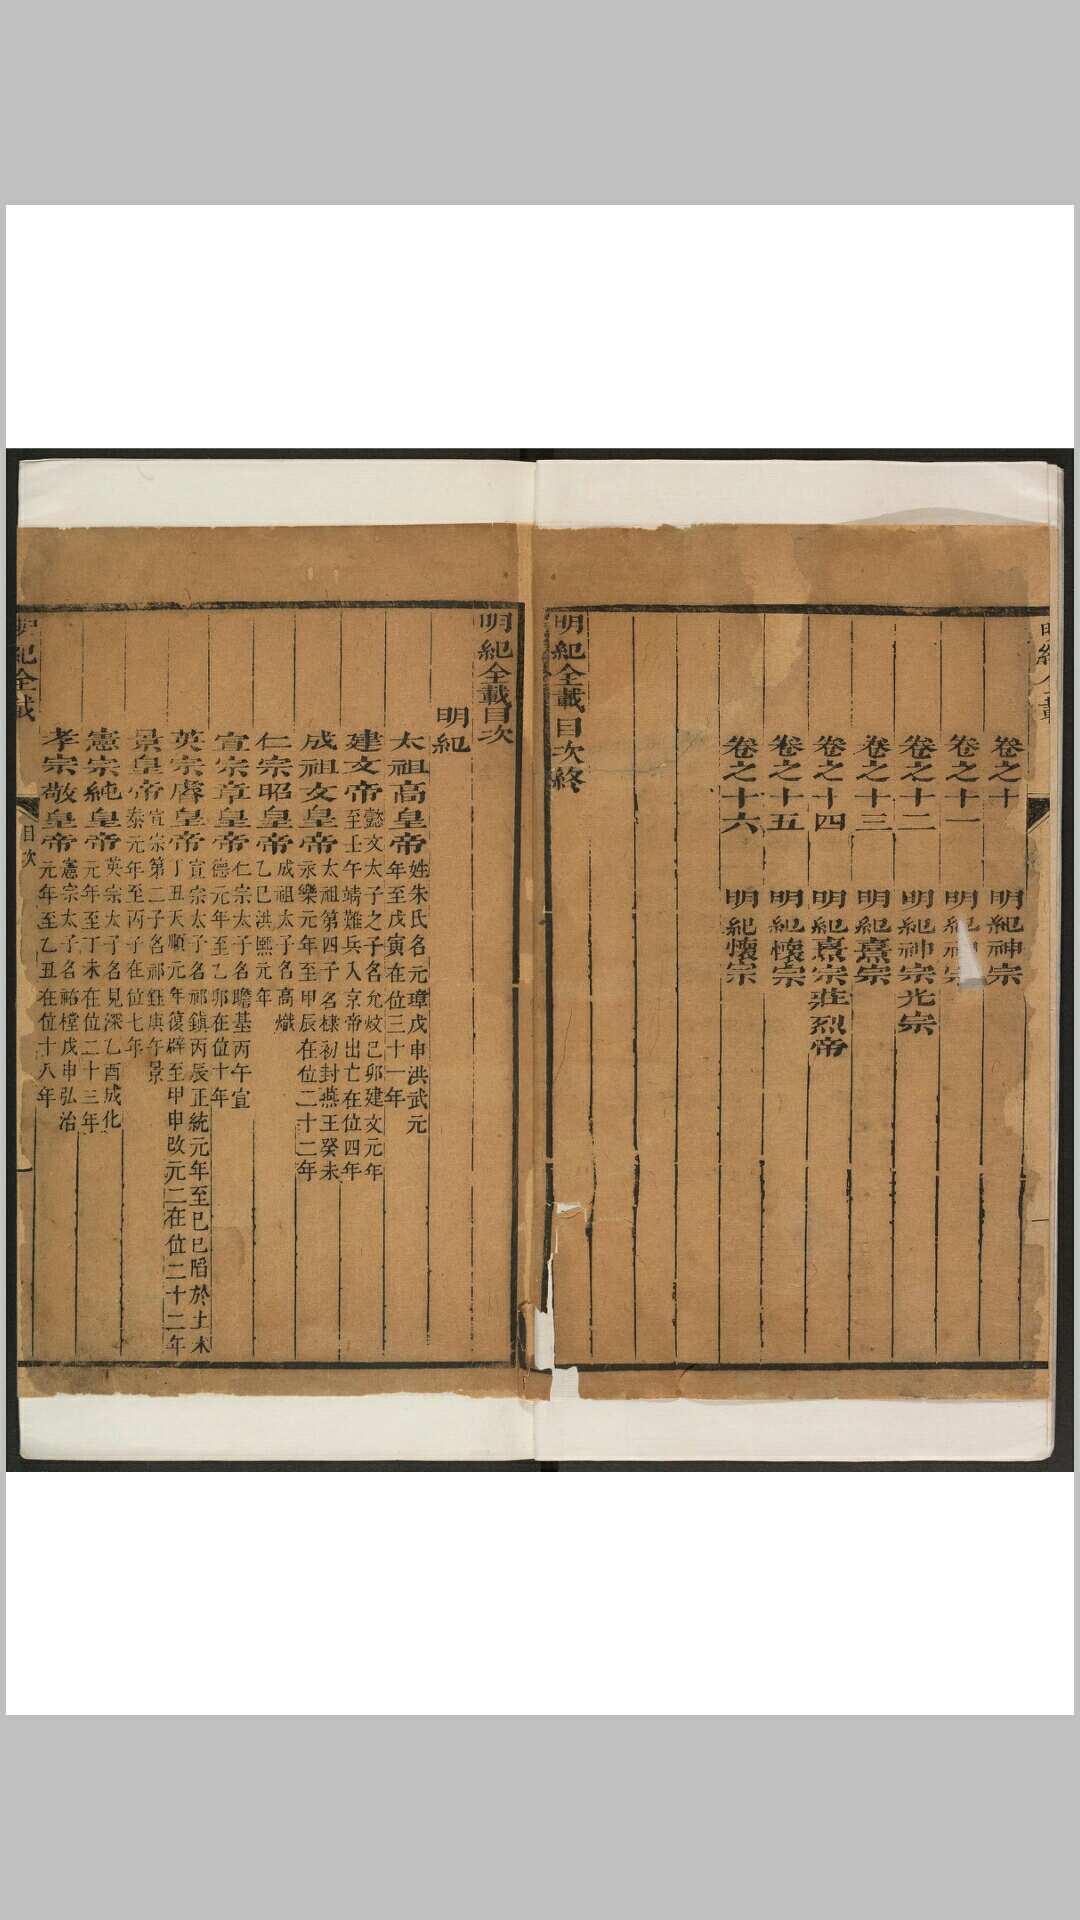 卷之十　明紀神宗
卷之十一　明紀神宗
卷之十二　明紀神宗光宗
卷之十三　明紀熹宗
卷之十四　明紀熹宗莊烈帝
卷之十五　明紀懷宗
卷之十六　明紀懷宗
明紀全載目次終
明紀全載目次
明紀
太祖高皇帝　姓朱氏名元璋戊申洪武元
年至戊寅在位三十一年
建文帝　懿文太子之子名允炆己卯建文元年
至壬午靖難兵入京帝出亡在位四年
成祖文皇帝　太祖第四子名棣初封燕王癸未
永樂元年至甲辰在位二十二年
仁宗昭皇帝　成祖太子名高熾
乙巳洪熙元年
宣宗章皇帝　仁宗太子名瞻基丙午宣
德元年至乙卯在位十年
英宗睿皇帝　宣宗太子名祁鎮丙辰正統元年至己巳陷於土木
丁丑天順元年復辟至甲申改元二在位二十二年
景皇帝　宣宗第二子名祁鈺庚午景
泰元年至丙子在位七年
憲宗純皇帝　英宗太子名見深乙酉成化
元年至丁未在位二十三年
孝宗敬皇帝　憲宗太子名祐樘戊申弘治
元年至乙丑在位十八年
明紀全載
目次